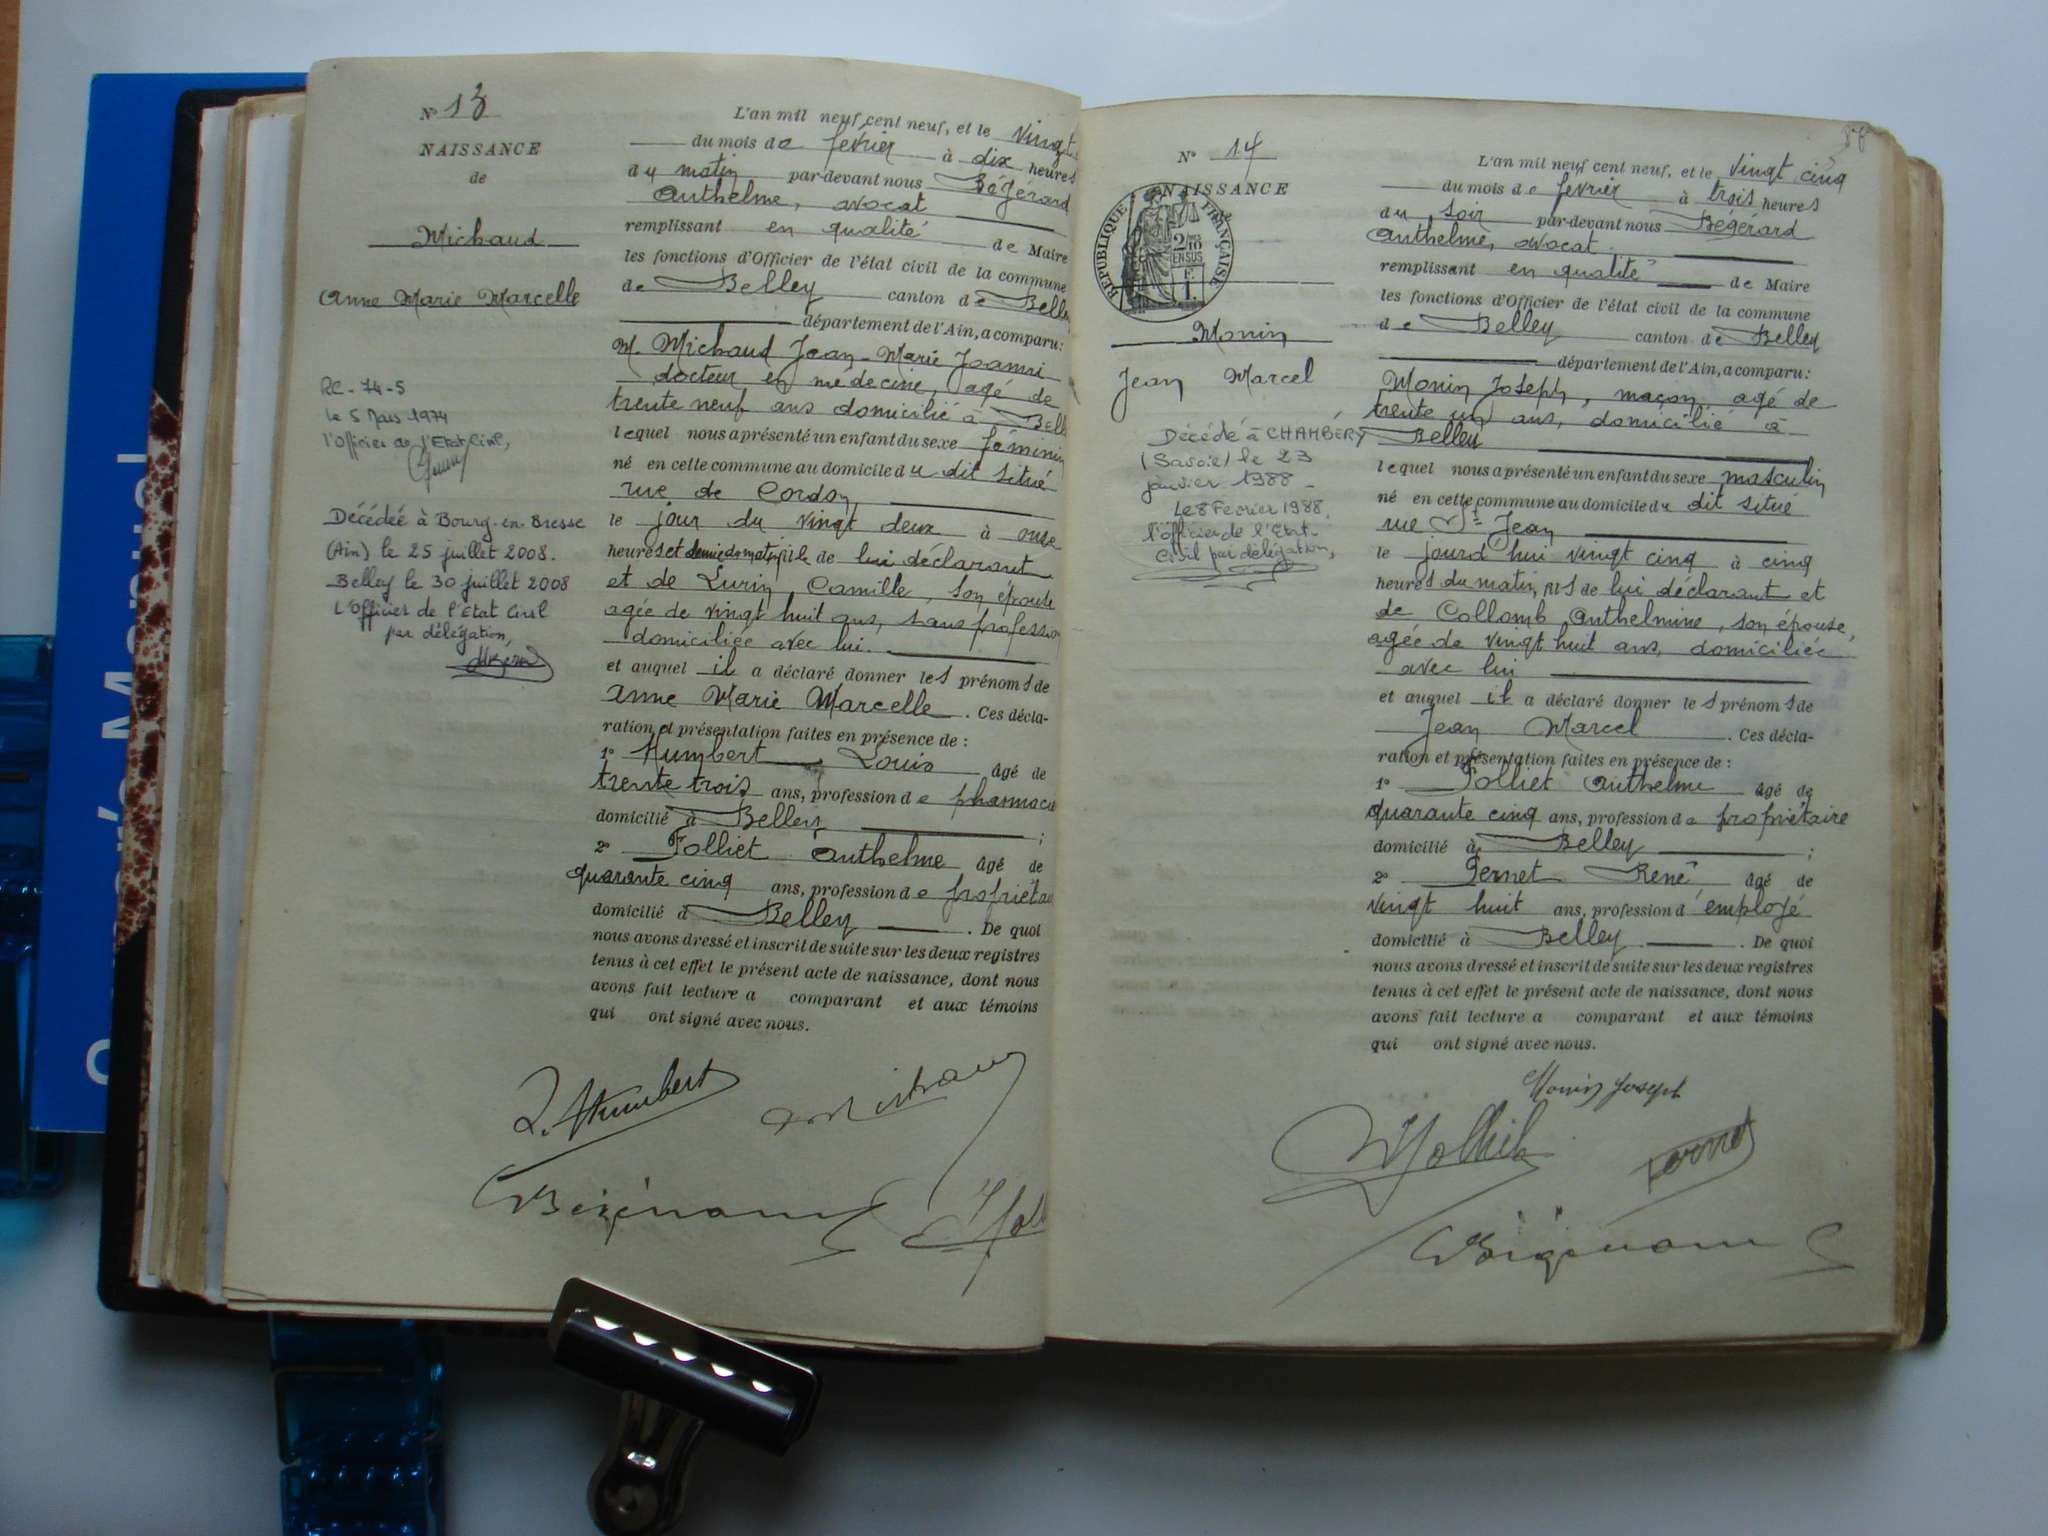 N° 13
NAISSANCE
de
Michaud
Anne Marie Marcelle
RC - 74 - 5
le 5 Mars 1974
l'Officier de l'Etat Civil,
Décédée à Bourg-en-Bresse
(Ain) le 25 juillet 2008.
Belley le 30 juillet 2008
L'Officier de l'Etat Civil
par délégation,
L'an mil neuf cent neuf, et le vingt
du mois de février à dix heures
du matin par-devant nous Bégérard
Anthelme, avocat
remplissant en qualité de Maire
les fonctions d'Officier de l'état civil de la commune
de Belley canton de Belley
département de l'Ain, a comparu:
M. Michaud Jean-Marie
docteur en médecine, agé de
trente neuf ans domicilié à Bell
lequel nous a présenté un enfant du sexe féminin
né en cette commune au domicile du dit situé
rue de Cordon
le jour du vingt deux à onze
heures et demie du matin, fille de lui déclarant
et de Lurin Camille, son épouse
agée de vingt huit ans, sans profession
domiciliée avec lui.
et auquel il a déclaré donner les prénoms de
Anne Marie Marcelle. Ces décla-
ration et présentation faites en présence de :
1° Humbert Louis âgé de
trente trois ans, profession de pharmacie
domicilié à Belley ;
2° Folliet Anthelme âgé de
quarante cinq ans, profession de propriéta
domicilié à Belley. De quoi
nous avons dressé et inscrit de suite sur les deux registres
tenus à cet effet le présent acte de naissance, dont nous
avons fait lecture a comparant et aux témoins
qui ont signé avec nous.
L. Humbert
N° 14
NAISSANCE
RÉPUBLIQUE FRANÇAISE
2/10 EN SUS
F. 1.
Monin
Jean Marcel
Décédé à CHAMBÉRY
(Savoie) le 23
janvier 1988 -
Le 8 Février 1988,
l'officier de l'Etat-
Civil par délégation,
L'an mil neuf cent neuf, et le vingt cinq
du mois de février à trois heures
du soir par-devant nous Bégérard
Anthelme, avocat
remplissant en qualité de Maire
les fonctions d'Officier de l'état civil de la commune
de Belley canton de Belley
département de l'Ain, a comparu:
Monin Joseph, maçon, agé de
trente un ans, domicilié à
Belley
lequel nous a présenté un enfant du sexe masculin
né en cette commune au domicile du dit situé
rue St Jean
le jourd'hui vingt cinq à cinq
heures du matin, fils de lui déclarant et
de Collomb Anthelmine, son épouse,
agée de vingt huit ans, domiciliée
avec lui
et auquel il a déclaré donner les prénoms de
Jean Marcel. Ces décla-
ration et présentation faites en présence de :
1° Folliet Anthelme âgé de
quarante cinq ans, profession de propriétaire
domicilié à Belley ;
2° Pernet René âgé de
vingt huit ans, profession d'employé
domicilié à Belley. De quoi
nous avons dressé et inscrit de suite sur les deux registres
tenus à cet effet le présent acte de naissance, dont nous
avons fait lecture a comparant et aux témoins
qui ont signé avec nous.
Monin Joseph